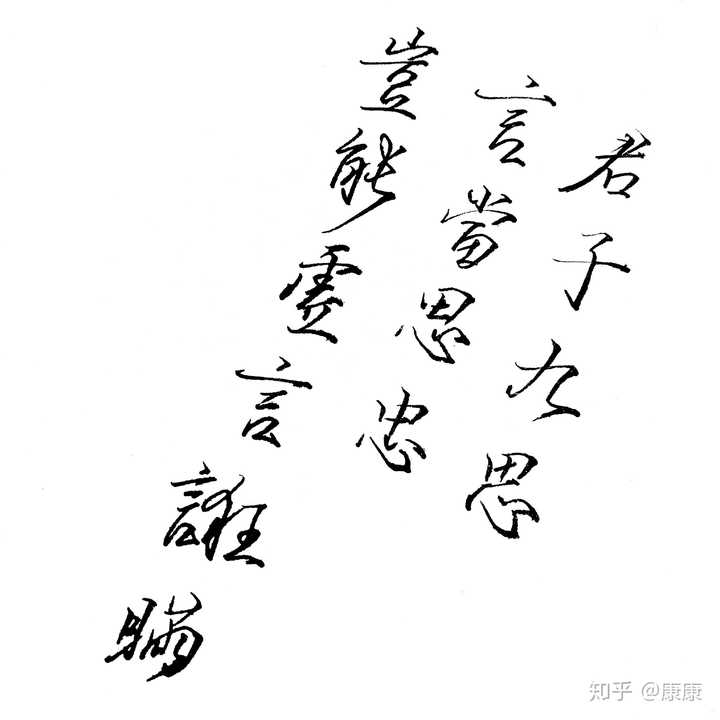 君子九思
言當思忠
豈能虛言誑瞞
知乎 @康康